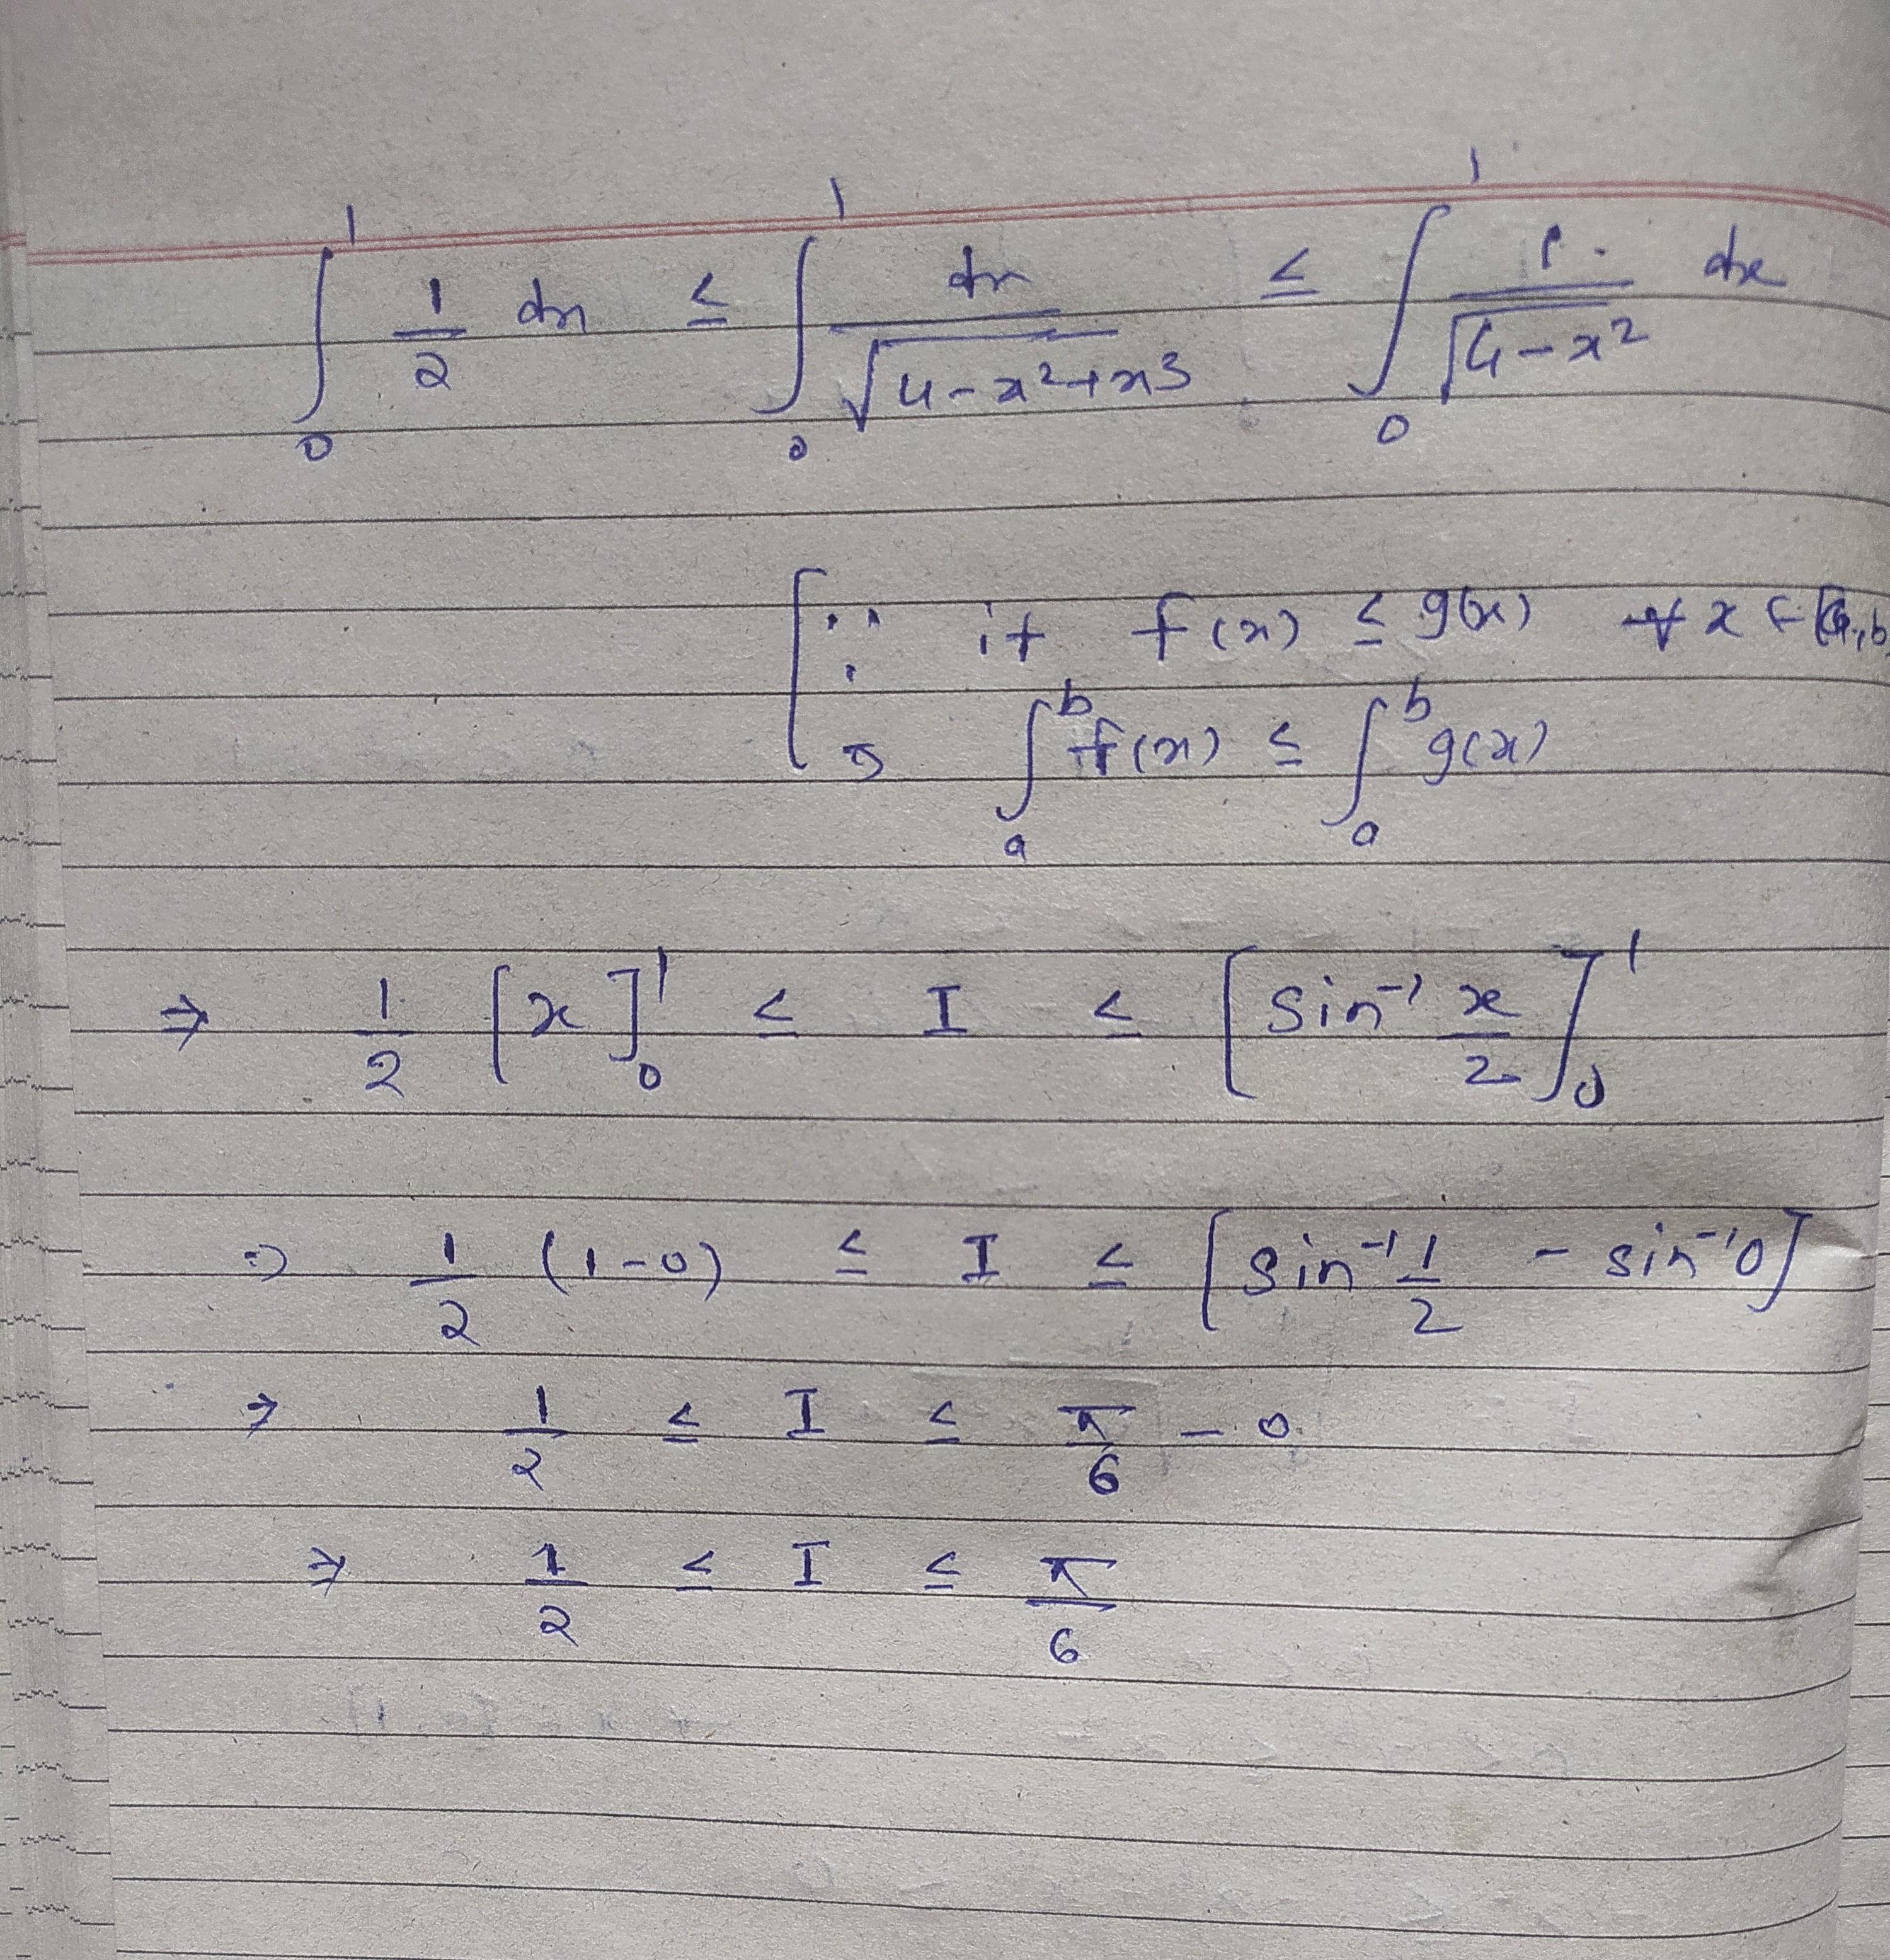 ∫₀¹ 1/2 dx ≤ ∫₀¹ dx/√(4-x²+x³) ≤ ∫₀¹ 1/√(4-x²) dx
[∵ if f(x) ≤ g(x) ∀ x ∈ [a,b
⇒ ∫ₐᵇ f(x) ≤ ∫ₐᵇ g(x)
⇒ 1/2 [x]₀¹ ≤ I ≤ [sin⁻¹ x/2]₀¹
⇒ 1/2 (1-0) ≤ I ≤ [sin⁻¹ 1/2 - sin⁻¹0]
⇒ 1/2 ≤ I ≤ π/6 - 0
⇒ 1/2 ≤ I ≤ π/6